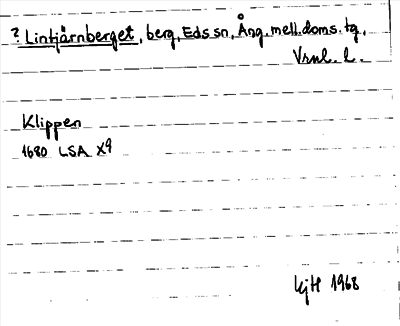 ? Lintjärnberget, berg, Eds sn, Ång. mell. doms. tg,
Vrnl. l.
Klippen
1680 LSA X9
kjH 1968